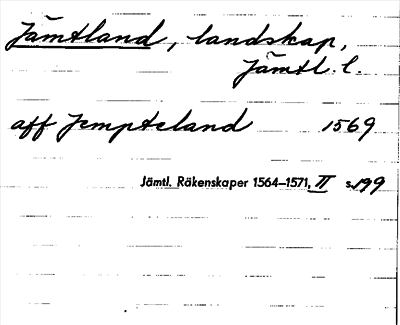 Jämtland, landskap,
Jämtl. l.
aff Jempteland 1569
Jämtl. Räkenskaper 1564–1571, II s.199